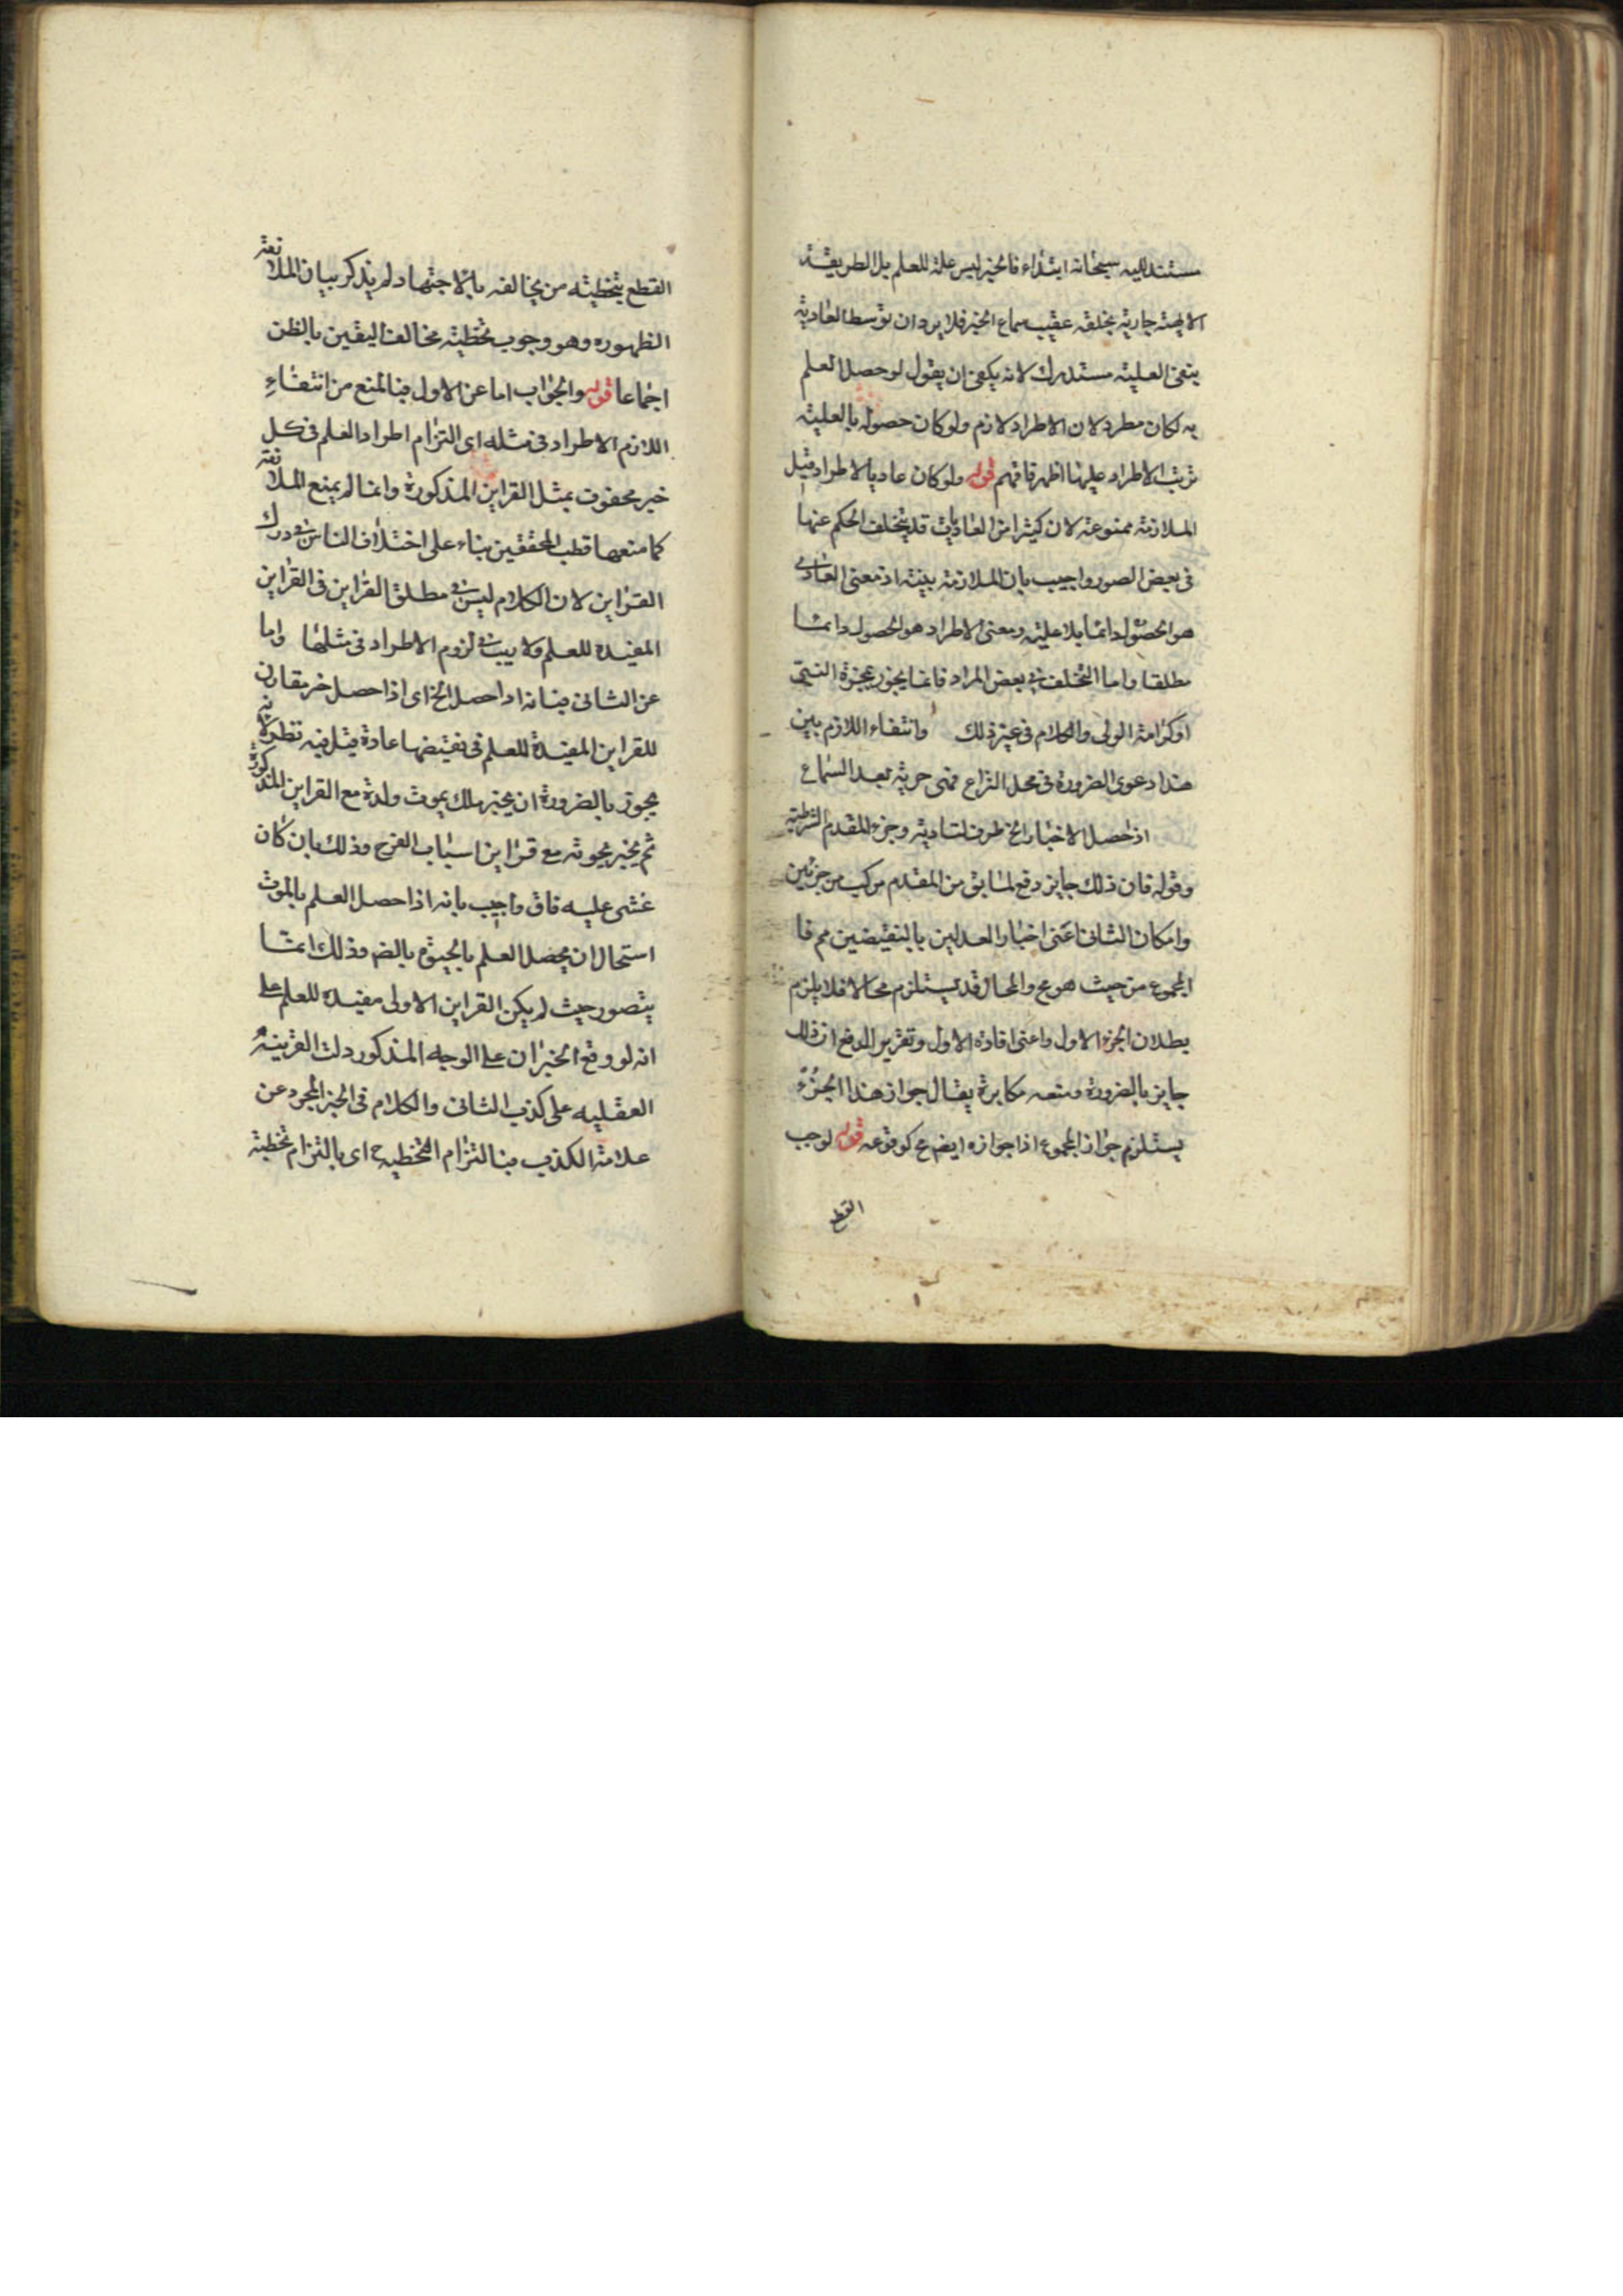 مستند اليه سبحانه ابتداء فالخبر ليس علة للعلم بل الطريقة
الالهية جارية بخلقه عقيب سماع الخبر فلا يرد ان توسط العادية
ينفى العلية مستدرك لانه يكفى ان يقول لو حصل العلم
به لكان مطرد لان الاطراد لازم ولو كان حصوله بالعلية
ترتب الاطراد عليها اظهر فافهم قوله ولو كان عاديا لاطرد قيل
الملازمة ممنوعة لان كثيرا من العاديات قد يتخلف الحكم عنها
فى بعض الصور واجيب بان الملازمة بينة اذ معنى العادى
هو الحصول دائما بلا علية ومعنى الاطراد هو الحصول دائما
مطلقا واما التخلف فى بعض المراد فانما يجوز بمعجزة النبى
او كرامة الولى والكلام فى غير ذلك وانتفاء اللازم بين
هذا دعوى الضرورة فى محل النزاع فهى حرية بعد السماع
اذ حصل الاخبار الخ ظرف لتاديته وجزء للمقدم الشرطية
وقوله فان ذلك جايز دفع لما يق من المقدم مركب من جزئين
وامكان الثانى اعنى اخبار العدلين بالنقيضين مم فا
لمجموع من حيث هو مح والمحال قد يستلزم محالا فلا يلزم
بطلان الجزء الاول واعنى افادة الاول وتقرير الدفع ان ذلك
جايز بالضرورة ومنعه مكابرة يقال جواز هذا الجزء
يستلزم جواز المجموع اذا جوازه ايض مح كوقوعه قوله لوجب
القطع
القطع بتخطيته من يخالفه بالاجتهاد لم يذكر بيان الملازمة
لظهوره وهو وجوب تخطية مخالف اليقين بالظن
اجماعا قوله والجواب اما عن الاول فبالمنع من انتفاء
اللازم الاطراد فى مثله اى التزام اطراد العلم فى كل
خبر محفوف بمثل القراين المذكورة وانما لم يمنع الملازمة
كما منعها قطب المحققين بناء على اختلاف الناس فى درك
القراين لان الكلام ليس فى مطلق القراين فى القراين
المفيدة للعلم ولا ريب فى لزوم الاطراد فى مثلها واما
عن الثانى فبانه اذا حصل الخ اى اذا حصل خبر مقارن
للقراين المفيدة للعلم فى نقيضها عادة قيل فيه نظر لانه
يجوز بالضرورة ان يخبر ملك بموت ولده مع القراين المذكورة
ثم يخبر بحيوته مع قراين اسباب الفرح وذلك بان كان
غشى عليه فاق واجيب بانه اذا حصل العلم بالموت
استحال ان يحصل العلم بالحيوة بالض وذلك انما
يتصور حيث لم يكن القراين الاولى مفيدة للعلم على
انه لو وقع الخبران على الوجه المذكور دلت القرينة
العقليه على كذب الثانى والكلام فى الخبر المجرد عن
علامة الكذب فبالتزام التخطيه ح اى بالتزام تخطية